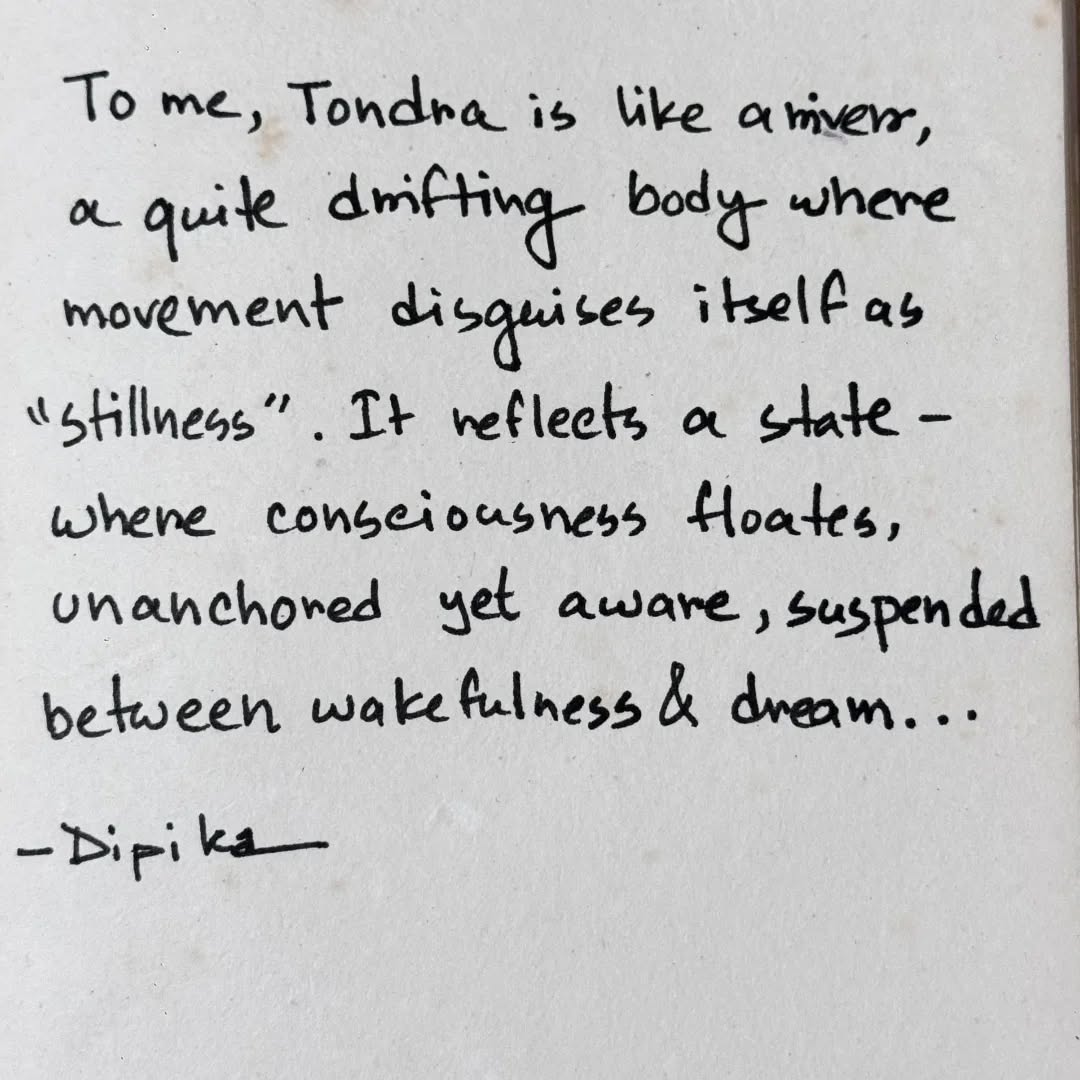 To me, Tondra is like a river,
a quite drifting body where
movement disguises itself as
"stillness". It reflects a state -
where consciousness floates,
unanchored yet aware, suspended
between wakefulness & dream...
- Dipika